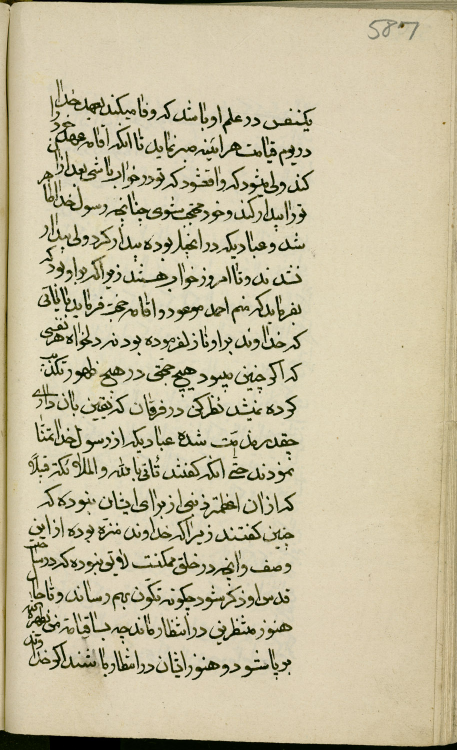 587
یکنفس در علم او باشد که وفا میکند بعهد خدا
در یوم قیامت هر آینه صبر نماید تا آنکه اقامه عهد خود را
کند ولی میشود که واقع شود که تو در خواب باشی بعد از آن
تو را بیدار کند و خود محتجب شوی چنانچه رسول خدا ظاهر
شد و عبادیکه در انجیل بوده بیدار کرد ولی بیدار
نشدند و تا امروز خواب هستند زیرا که بر او بود که
بفرماید که منم احمد موعود و اقامه حجت فرماید بآیاتی
که خداوند بر او نازل فرموده بود نه دلخواه هر نفسی
که اگر چنین میبود هیچ حجتی در هیچ ظهور تکذیب
کرده نمیشد نظر کن در فرقان که یقین بآن داری
چقدر عباد یکه از رسول خدا تمنا
نمودند حتی آنکه گفتند تأتی بالله و الملائکة قبیلا
که از آن اعظمتر ذنبی از برای ایشان نبوده که
چنین گفتند زیرا که خداوند منزه بوده از این
وصف و آنچه در خلق ممکنست لایق نبوده که در ساحت
قدس او ذکر شود چگونه تکون بهم رساند و تا حال
هنوز منتظرین در انتظار مانده چه بسا قیامت من یظهره الله
برپا شود و هنوز ایشان در انتظار باشند اگر خداوند